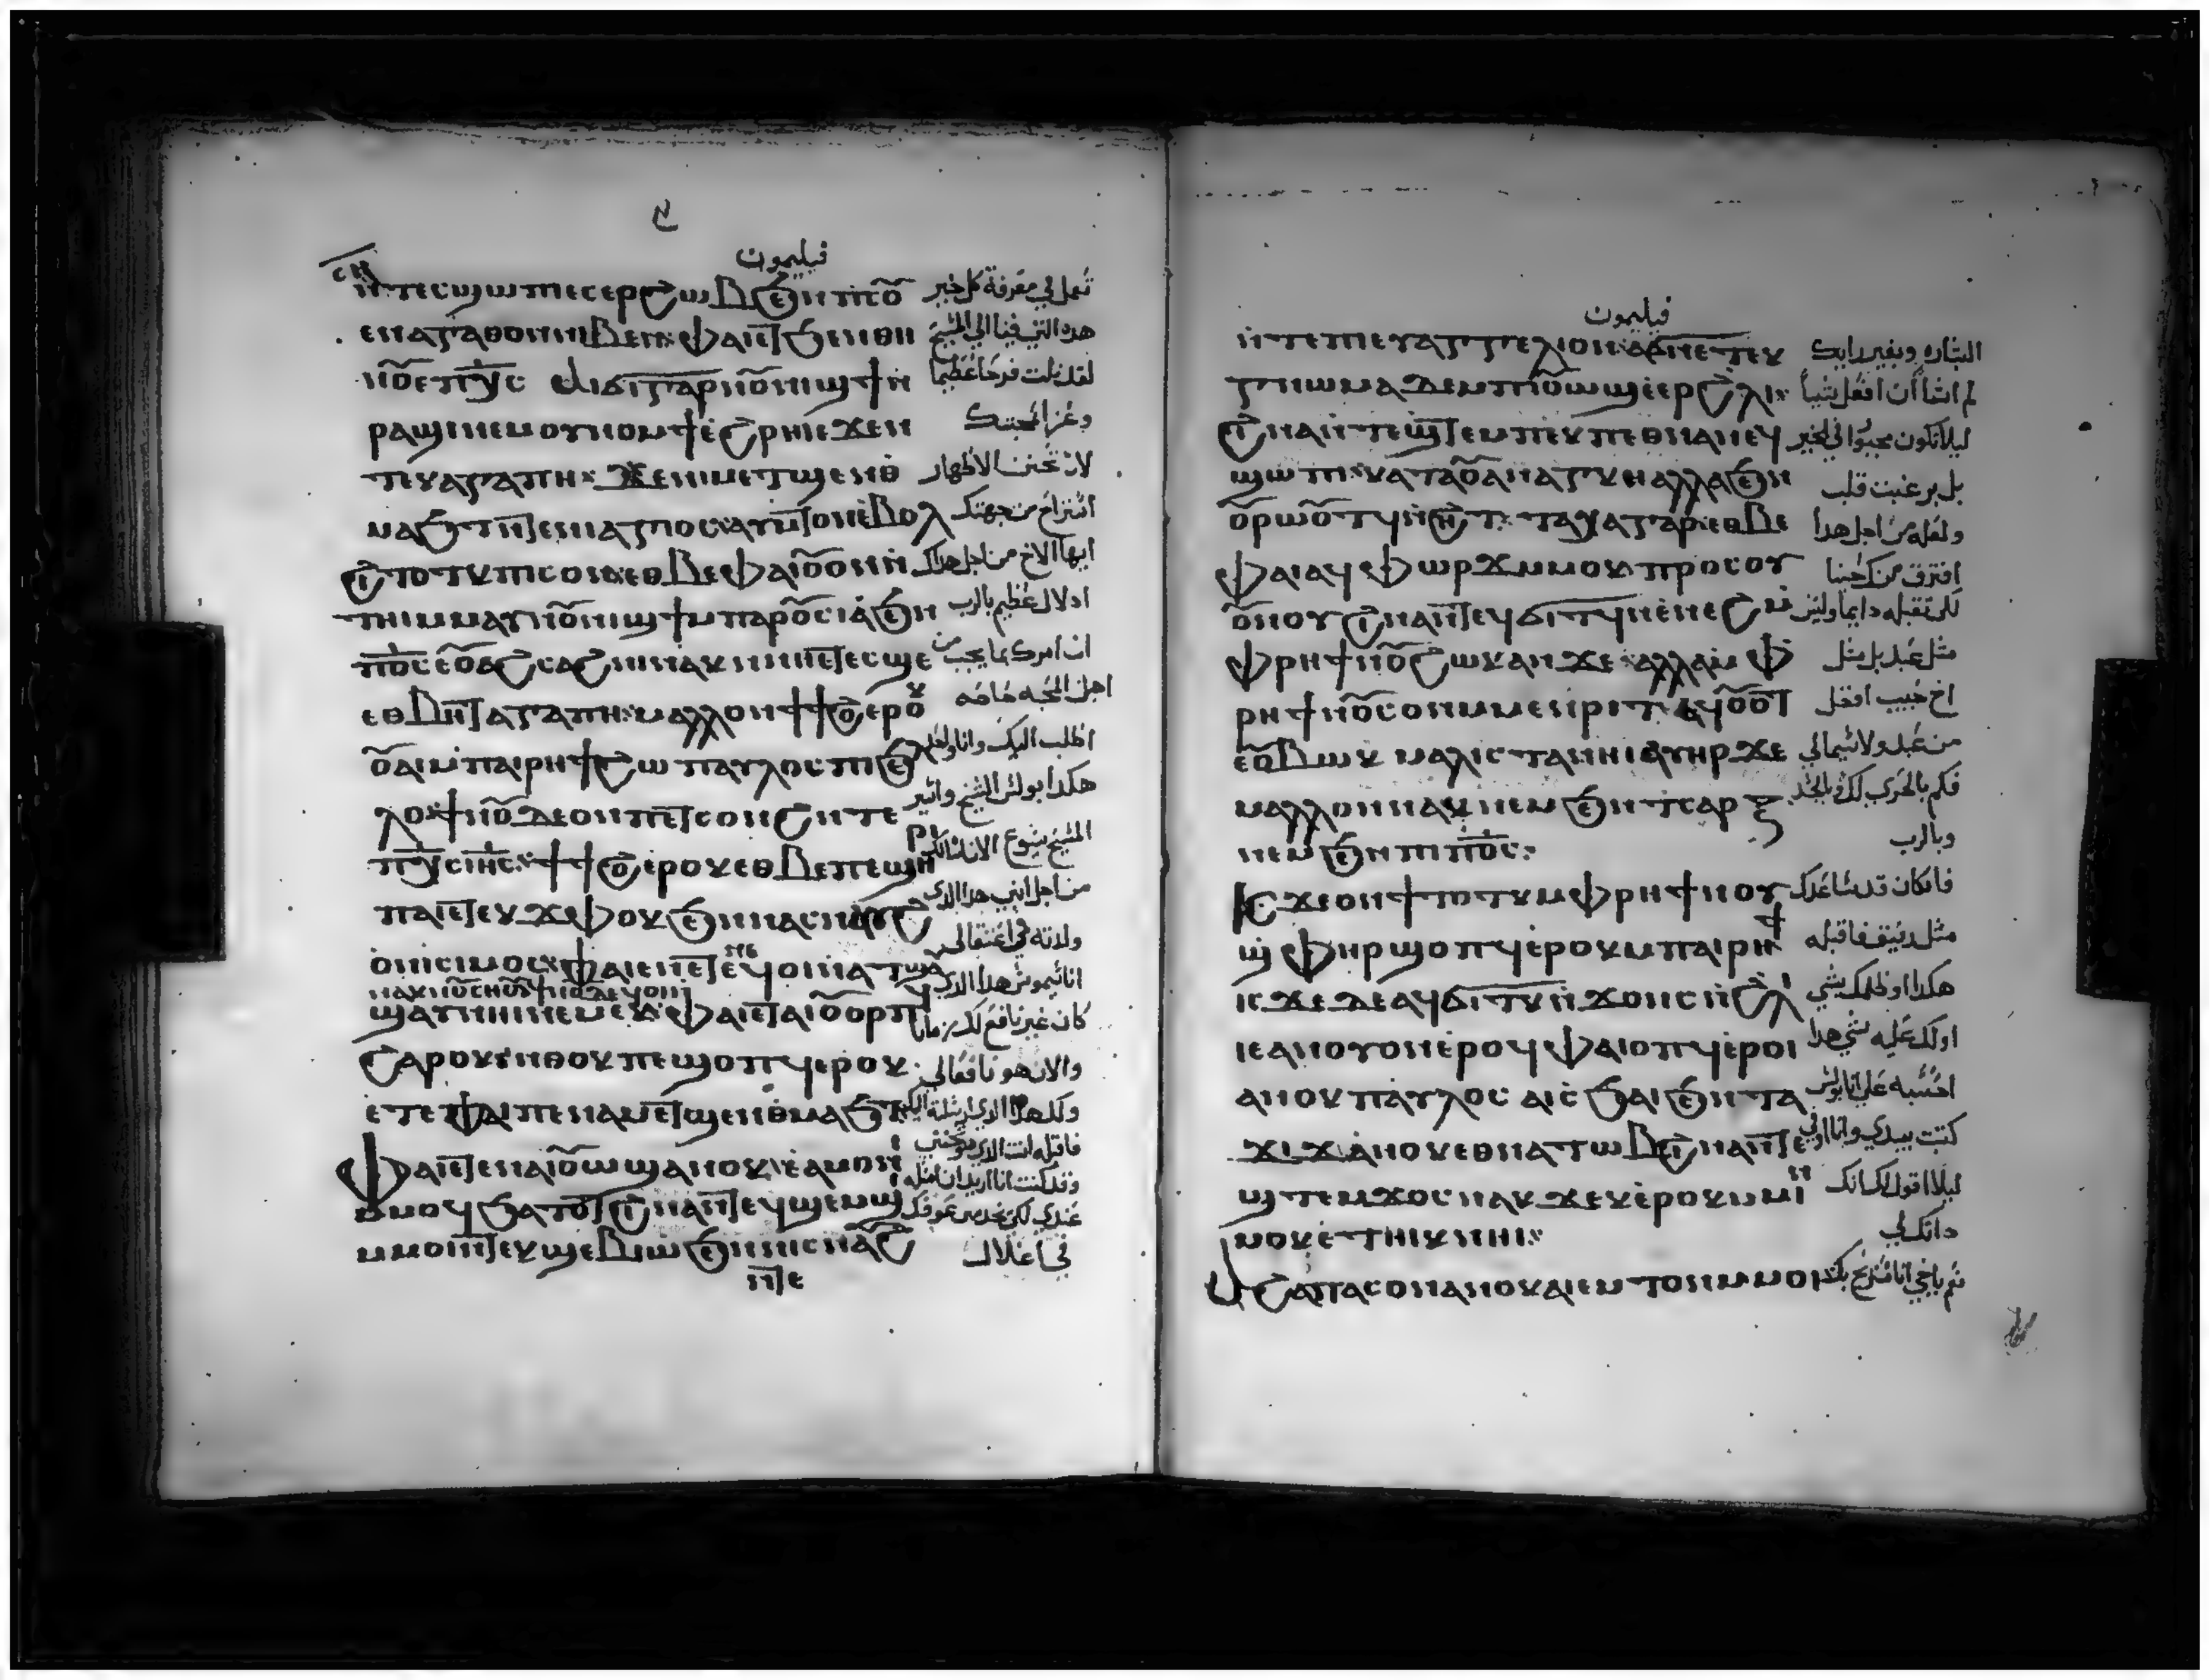 فيليمون
ⲛ̀ⲧⲉⲥϣⲱⲡⲓ ⲉⲥⲉⲣϩⲱⲃ ϧⲉⲛ ⲡⲥⲟ̅ تعمل في معرفة كل خير
ⲉⲛⲁⲅⲁⲑⲟⲛ ⲛⲓⲃⲉⲛ ⲫⲁⲓ ⲉⲧ ϧⲉⲛ ⲑⲏ هده التي فينا الي المسيح
ⲛⲟ̅ ⲉⲡⲭ̅ⲥ ⲁⲓϭⲓ ⲅⲁⲣ ⲛⲟ̅ⲛⲓϣϯ ⲛ̀ لقد نلت فرحا عظيما
ⲣⲁϣⲓ ⲛⲉⲙ ⲟⲩⲛⲟⲙϯ ⲉ̀ϩⲣⲏⲓ ϫⲉⲛ وعزا لمحبتك
ⲧⲉⲕⲁⲅⲁⲡⲏ ϫⲉ ⲛⲓⲙⲉⲧϣⲉⲛϩ لان تحنن الاطهار
ⲙⲁϧⲧ ⲛ̀ⲧⲉ ⲛⲓⲁⲅⲓⲟⲥ ⲁⲩⲙ̀ⲧⲟⲛ ⲉ̀ⲃⲟⲗ استراح من جهتك
ϩⲓⲧⲟⲧⲕ ⲡⲥⲟⲛ ⲉⲑⲃⲉ ⲫⲁⲓ ⲟ̅ⲟⲛ ⲛ̀ ايها الاخ من اجل هدا لك
ⲧⲏⲓ ⲙⲙⲁⲩ ⲛⲟ̅ⲛⲓϣϯ ⲙⲡⲁⲣⲟ̅ⲥⲓⲁ̀ ϧⲉⲛ ادلال عظيم بالرب
ⲡⲟ̅ⲥ ⲉⲟ̅ⲁϩⲥⲁϩⲛⲓ ⲛⲁⲕ ⲙ̀ⲡⲉⲧⲉⲥϣⲉ ان امرك بما يجب من
ⲉⲑⲃⲉ ϯⲁⲅⲁⲡⲏ ⲙⲁⲗⲗⲟⲛ ϯϯϩⲟ ⲉⲣⲟⲕ اجل المحبه خاصه
ⲟ̅ⲁⲓ ⲙ̀ⲡⲁⲓⲣⲏϯ ϩⲱ ⲡⲁⲩⲗⲟⲥ ⲡⲓϧⲉ اطلب اليك وانا
ⲗⲟ ϯⲛⲟ̅ ⲇⲉ ⲟⲛ ⲡⲉⲧⲥⲟⲛϩ ⲛ̀ⲧⲉ هكدا بولس الشيخ واسير
ⲡⲭ̅ⲥ ⲓⲏ̅ⲥ ϯϯϩⲟ ⲉ̀ⲣⲟⲕ ⲉⲑⲃⲉ ⲡⲉϣⲏⲣⲓ المسيح يسوع الان اسالك
ⲡⲁⲓ ⲉⲧⲉⲕϫⲫⲟⲕ ϧⲉⲛ ⲛⲁⲥⲛⲁⲩϩ من اجل ابني هدا الدي
ⲟⲛⲓⲥⲓⲙⲟⲥ ⲫⲁⲓ ⲉⲛⲉ ⲉϥⲟⲓ ⲛ̀ⲁⲧϣⲁⲩ ولدته في اعتقالي
ⲛⲁⲕ ⲛⲟ̅ⲥⲏⲟⲩ ϯⲛⲟ̅ ⲇⲉ ϥⲟⲓ انا سيموس هدا الدي
ϣⲁⲩ ⲛⲏⲓ ⲛⲉⲙⲉⲕ ⲫⲁⲓ ⲉⲧⲁⲓⲟ̅ⲟⲣⲡϥ كان غير نافع لك زمانا
ϩⲁⲣⲟⲕ ⲛ̀ⲑⲟⲕ ⲡⲉ ϣⲟⲡϥ ⲉⲣⲟⲕ والان هو نافعا لي
ⲉ̀ⲧⲉ ⲫⲁⲓ ⲡⲉ ⲛⲁⲙⲉⲧϣⲉⲛϩⲙⲁϧⲧ ولك هدا الدي ارسلته اليك
ⲫⲁⲓ ⲉⲧⲉⲛⲁⲓⲟ̅ⲱϣ ⲁⲛⲟⲕ ⲉ̀ⲁⲙⲟⲛⲓ فاقبله انت الدي هو تحنني
ⲙ̀ⲙⲟϥ ϧⲁⲧⲟⲧ ϩⲓⲛⲁ ⲛ̀ⲧⲉϥϣⲉⲙϣⲓ وقد كنت انا اريد ان امسكه
ⲙⲙⲟⲓ ⲛ̀ⲧⲉⲕϣⲉⲃⲓⲱ ϧⲉⲛ ⲛⲓⲥⲛⲁⲩϩ عندي لكي يخدمني عوضك
ⲛ̀ⲧⲉ في اغلال
فيليمون
ⲛ̀ⲧⲉ ⲡⲓⲉⲩⲁⲅⲅⲉⲗⲓⲟⲛ ⲁϭⲛⲉ ⲧⲉⲕ البشاره وبغير رايك
ⲅⲛⲱⲙⲏ ⲇⲉ ⲙⲡⲓⲟ̅ⲱϣ ⲉ̀ⲉⲣϩⲗⲓ لم اشا ان افعل شيا
ϩⲓⲛⲁ ⲛ̀ⲧⲉϣⲧⲉⲙ ⲡⲉⲕⲡⲉⲑⲛⲁⲛⲉϥ ليلا تكون مجبورا في الخير
ϣⲱⲡⲓ ⲕⲁⲧⲁ ⲟ̅ⲁⲛⲁⲅⲕⲏ ⲁⲗⲗⲁ ϧⲉⲛ بل برغبت قلب
ⲟ̅ⲣⲱⲟ̅ⲧϥ ⲛ̀ϩⲏⲧ ⲧⲁⲭⲁ ⲅⲁⲣ ⲉⲑⲃⲉ ولعله من اجل هدا
ⲫⲁⲓ ⲁϥⲫⲱⲣϫ ⲙⲙⲟⲕ ⲡⲣⲟⲥⲟⲩ افترق منك حينا
ⲟ̅ⲛⲟⲩ ϩⲓⲛⲁ ⲛ̀ⲧⲉϥϭⲓⲧϥ ⲛ̀ⲉ̀ⲛⲉϩ ⲙ̀ لكي تقبله دايما وليس
ⲫⲣⲏϯ ⲛⲟ̅ϩⲱⲕ ⲁⲛ ϫⲉ ⲁⲗⲗⲁ ⲙ̀ⲫ مثل عبد بل مثل
ⲣⲏϯ ⲛⲟ̅ⲥⲟⲛ ⲙⲙⲉⲛⲣⲓⲧ ⲉϥⲟ̅ⲟⲧ اخ حبيب افضل
ⲉⲟ̅ⲃⲱⲕ ⲙⲁⲗⲓⲥⲧⲁ ⲛⲏⲓ ⲁⲩⲏⲣ ϫⲉ من عبد ولا سيما لي
ⲙⲁⲗⲗⲟⲛ ⲛⲁⲕ ⲛⲉⲙ ϧⲉⲛ ⲧⲥⲁⲣⲝ فكم بالحري لك بالجسد
ⲛⲉⲙ ϧⲉⲛ ⲡⲓⲡⲟ̅ⲥ وبالرب
ⲓⲥϫⲉ ⲟⲛ ϯⲧⲟⲧⲕ ⲙⲫⲣⲏϯ ⲛⲟⲩ فان كان قد ساعدك
ϣ̀ⲫⲏⲣ ϣⲟⲡϥ ⲉ̀ⲣⲟⲕ ⲙⲡⲁⲓⲣⲏϯ مثل رفيق فاقبله
ⲓⲥϫⲉ ⲇⲉ ⲁϥϭⲓⲧⲕ ⲛ̀ϫⲟⲛⲥ ⲛ̀ϩⲗⲓ هكدا او ظلمك بشي
ⲓⲉ ⲁⲛ ⲟⲩⲟⲛ ⲉ̀ⲣⲟϥ ⲫⲁⲓ ⲟⲡϥ ⲉ̀ⲣⲟⲓ او لك عليه شي هدا
ⲁⲛⲟⲕ ⲡⲁⲩⲗⲟⲥ ⲁⲓⲥϧⲁⲓ ϧⲉⲛ ⲧⲁ احسبه علي انا بولس
ϫⲓϫ ⲁⲛⲟⲕ ⲉⲑⲛⲁⲧⲱⲃ ϩⲓⲛⲁ ⲛ̀ⲧⲉ كتبت بيدي وانا اوفي
ϣⲧⲉⲙϫⲟⲥ ⲛⲁⲕ ϫⲉ ⲕⲉⲣⲟⲕ ⲙⲙⲓⲛ ليلا اقول لك انك
ⲙⲟⲕ ⲉ̀ⲧⲏⲓⲕ ⲛⲏⲓ داتك لي
ⲁϩⲁ ⲡⲁⲥⲟⲛ ⲁⲛⲟⲕ ⲁⲓⲉⲙⲧⲟⲛ ⲙⲙⲟⲓ نعم ياخي انا استريح بك